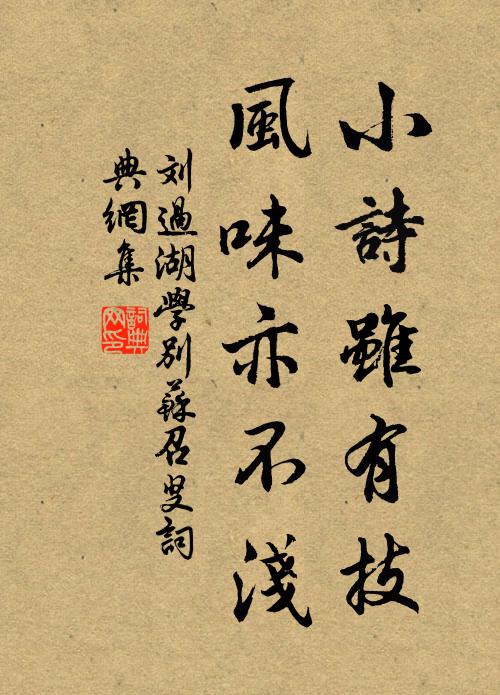 小詩雖有技
風味亦不淺
刘過湖學别蘇召叟詞
典網集
詞典網印